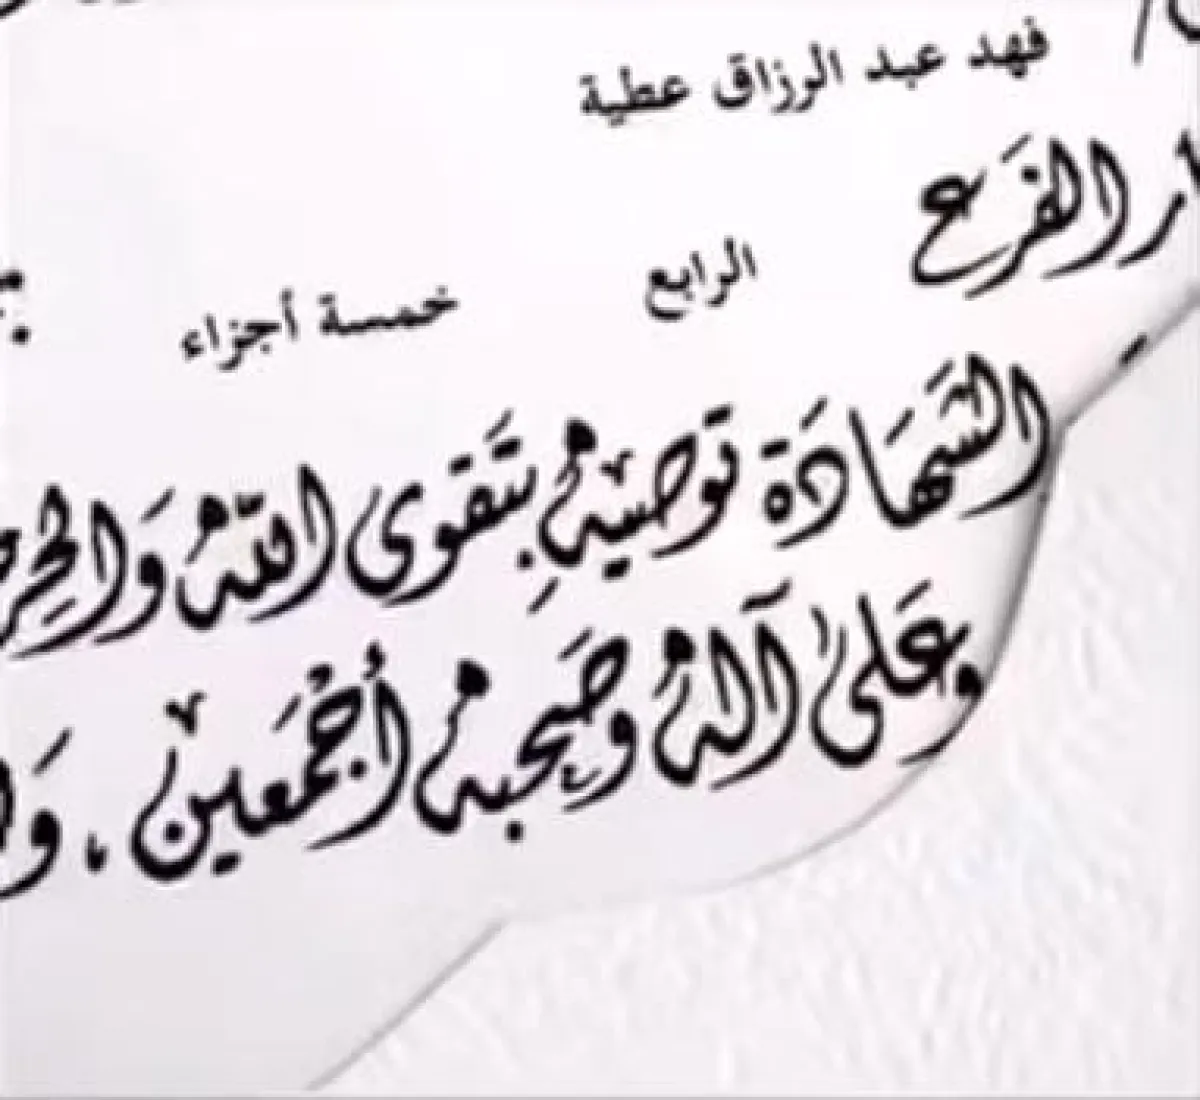 فهد عبد الرزاق عطية
الفَرَع
الرابع خمسة أجزاء
الشَهَادَة توصيه بِتَقوى اللّه وَالحِر
وَعَلىٰ آله وصَحِبه أُجْمَعين ،